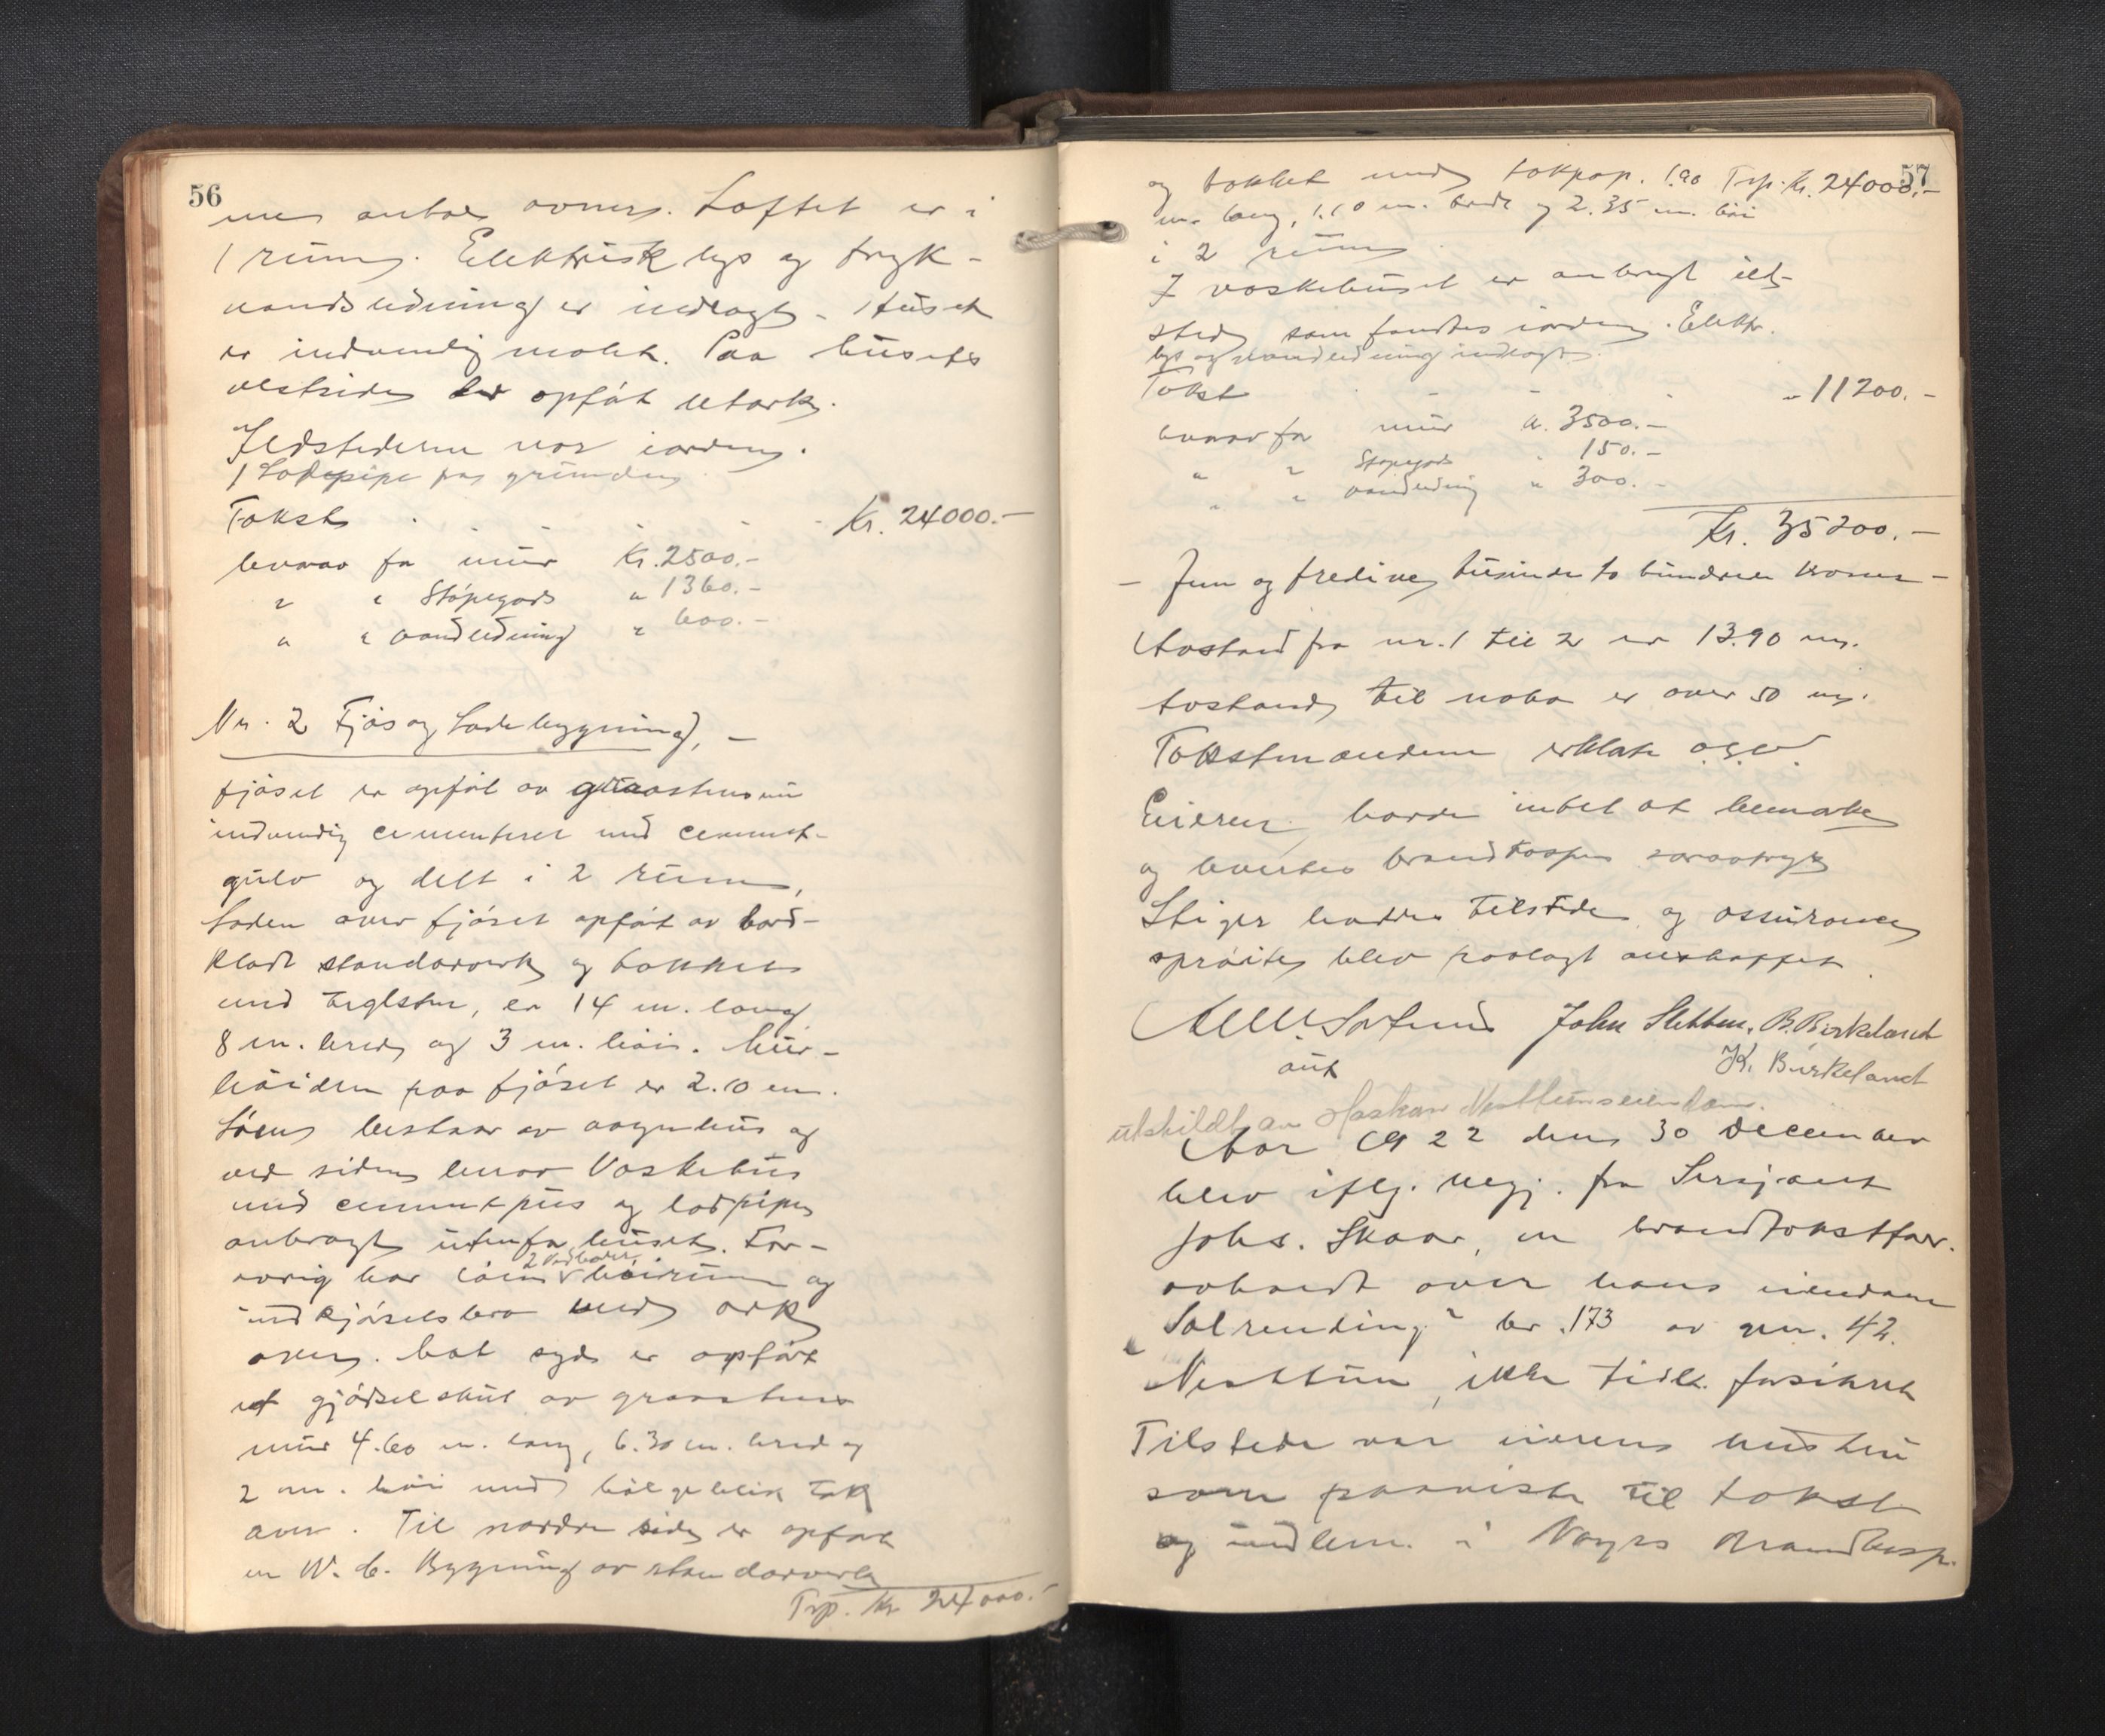 56
med antal ovner. Loftet er i
1 rum. Elektrisk lys og tryk-
vandsledning er indlagt. Huset
er indvendig malt. Paa husets
vestside er opført utark.
Ildstederne var iorden.
1 Lodepipe fra grunden
Takst Kr. 24000.-
hvorav for mur Kr. 2500.-
" " Støpegods " 1360.-
" " vandledning " 600.-
Nr. 2 Fjøs og Ladebygning, -
fjøset er opført av graastensmur
indvendig cementeret med cement-
gulv og delt i 2 rum,
Laden over fjøset opført av bord-
klædt standarverk og tækket
med teglsten, er 14 m. lang
8 m. bred og 3 m. høi. Mur-
høiden paa fjøset er 2.10 m.
Løen bestaar av vognhus og
ved siden herav Vaskehus
med cementpus og lodpipe
anbragt utenfor huset. For-
øvrig har løen 2 høirum og
indkjørselsbro med ark
over. Mot syd er opført
et gjødselskur av graastens
mur 4.60 m. lang, 6.30 m. bred og
2 m. høi med bølgeblik tak
over. Til nordre side er opført
en W. C. Bygning av standarverk
Trp. Kr 24000.-
57
og tækket med takpap. 1.90 Trp. Kr. 24000.-
m. lang, 1.10 m. bred og 2.35 m. høi
i 2 rum
I vaskehuset er anbragt ild-
sted som fandtes iorden. Elektr.
lys og vandledning indlagt.
Takst " 11200.-
hvorav for mur Kr. 3500.-
" " Støpegods " 150.-
" " vandledning " 300.-
Kr. 35200.-
- Fem og tredive tusinde to hundrede kroner -
Avstand fra nr. 1 til 2 er 13.90 m.
avstand til nabo er over 50 m.
Takstmændene erklærte o.s.v.
Eieren havde intet at bemærke
og hvertes brandkasse
Stiger havdes tilstede og assurance
sprøite blev paalagt anskaffet.
John Sletten, B. Birkeland
aut K. Birkeland
utskildt av Haakon Nesttuns eiendom.
Aar 1922 den 30 december
blev iflg. begj. fra Sersjant
Johs. Skaar, en brandtakstfor.
avholdt over hans eiendom
"Solrending" br. 173 av gn. 42.
Nesttun, ikke tidl. forsikret
Tilstede var eierens hustru
som paaviste til takst
og indlem. i Norges Brandkasse.